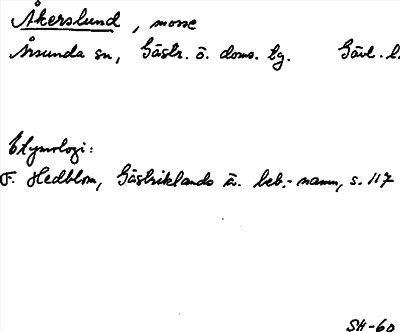 Åkerslund, mosse
Årsunda sn, Gästr. ö. doms. tg. Gävl. l.
Etymologi:
F. Hedblom, Gästriklands ä. beb.-namn, s. 117
SH-60